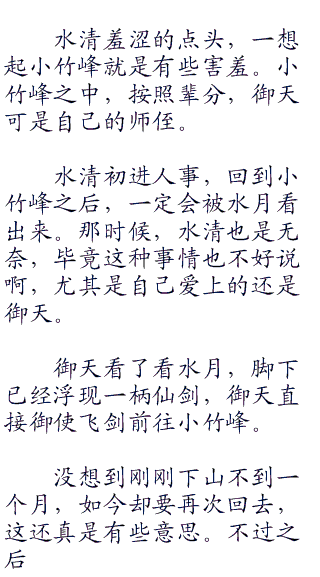 水清羞涩的点头，一想
起小竹峰就是有些害羞。小
竹峰之中，按照辈分，御天
可是自己的师侄。
水清初进人事，回到小
竹峰之后，一定会被水月看
出来。那时候，水清也是无
奈，毕竟这种事情也不好说
啊，尤其是自己爱上的还是
御天。
御天看了看水月，脚下
已经浮现一柄仙剑，御天直
接御使飞剑前往小竹峰。
没想到刚刚下山不到一
个月，如今却要再次回去，
这还真是有些意思。不过之
后